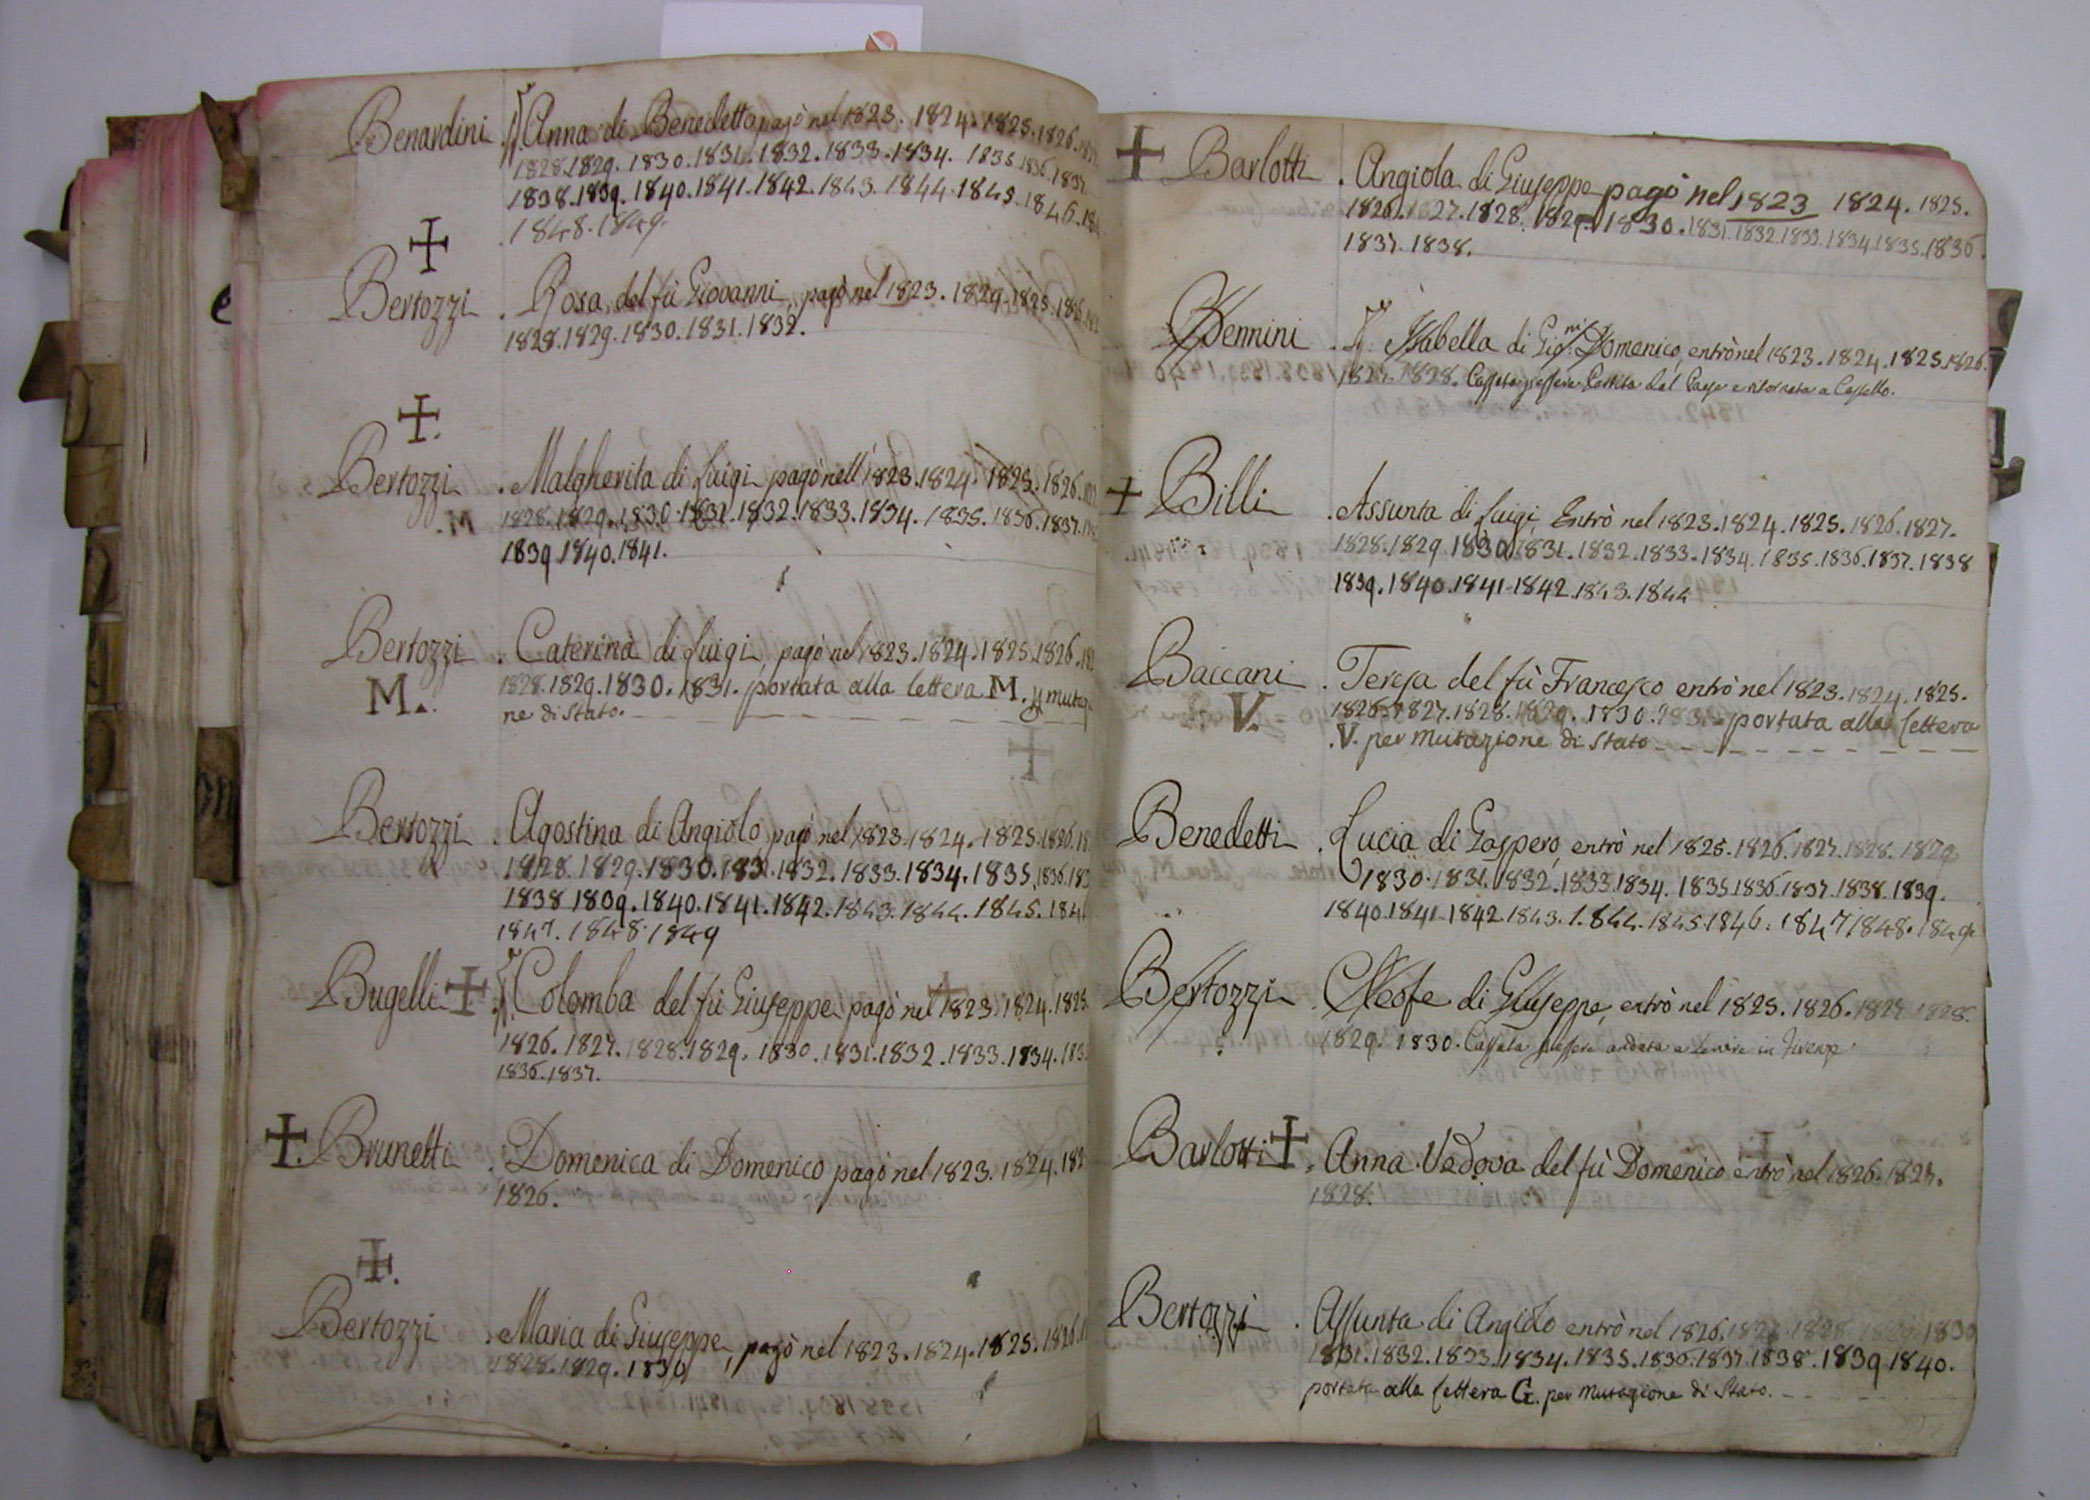 Benardini . Anna di Benedetto pagò nel 1823. 1824. 1825. 1826.
1828. 1829. 1830. 1831. 1832. 1833. 1834. 1835. 1836. 1837.
1838. 1839. 1840. 1841. 1842. 1843. 1844. 1845. 1846.
1848. 1849.
Bertozzi . Rosa del fù Giovanni, pagò nel 1823. 1824. 1825. 1826.
1828. 1829. 1830. 1831. 1832.
Bertozzi . Malgherita di Luigi pagò nell' 1823. 1824. 1825. 1826.
1828. 1829. 1830. 1831. 1832. 1833. 1834. 1835. 1836. 1837.
1839. 1840. 1841.
Bertozzi . Caterina di Luigi, pagò nel 1823. 1824. 1825. 1826.
M. 1828. 1829. 1830. 1831. portata alla lettera M. p mutazio
ne di Stato.
Bertozzi . Agostina di Angiolo pagò nel 1823. 1824. 1825. 1826.
1828. 1829. 1830. 1831. 1832. 1833. 1834. 1835. 1836.
1838. 1839. 1840. 1841. 1842. 1843. 1844. 1845.
1847. 1848. 1849
Bugelli . Colomba del fù Giuseppe pagò nel 1823. 1824. 1825.
1826. 1827. 1828. 1829. 1830. 1831. 1832. 1833. 1834.
1836. 1837.
Brunetti . Domenica di Domenico pagò nel 1823. 1824.
1826.
Bertozzi . Maria di Giuseppe, pagò nel 1823. 1824. 1825. 1826.
1828. 1829. 1830
Barlotti . Angiola di Giuseppe pagò nel 1823 1824. 1825.
1826. 1827. 1828. 1829. 1830. 1831. 1832. 1833. 1834. 1835. 1836.
1837. 1838.
Bennini . Isabella di Gio: Domenico, entrò nel 1823. 1824. 1825. 1826.
1827. 1828. Cassata p essere Partita dal Paese e ritornata a Castello.
Billi . Assunta di Luigi, Entrò nel 1823. 1824. 1825. 1826. 1827.
1828. 1829. 1830. 1831. 1832. 1833. 1834. 1835. 1836. 1837. 1838
1839. 1840. 1841. 1842. 1843. 1844
Baccani . Teresa del fù Francesco entrò nel 1823. 1824. 1825.
V. 1826. 1827. 1828. 1829. 1830. 1831. portata alla lettera
.V. per mutazione di Stato
Benedetti . Lucia di Gaspero, entrò nel 1825. 1826. 1827. 1828. 1829
1830. 1831. 1832. 1833. 1834. 1835. 1836. 1837. 1838. 1839.
1840. 1841. 1842. 1843. 1844. 1845. 1846. 1847. 1848. 1849.
Bertozzi . Cleofe di Giuseppe, entrò nel 1825. 1826. 1827. 1828.
1829. 1830. Cassata p essere andata a Servire in Firenze
Barlotti . Anna Vedova del fù Domenico entrò nel 1826. 1827.
1828.
Bertozzi . Assunta di Angiolo entrò nel 1826. 1827. 1828. 1829. 1830
1831. 1832. 1833. 1834. 1835. 1836. 1837. 1838. 1839. 1840.
portata alla lettera G. per mutazione di Stato.